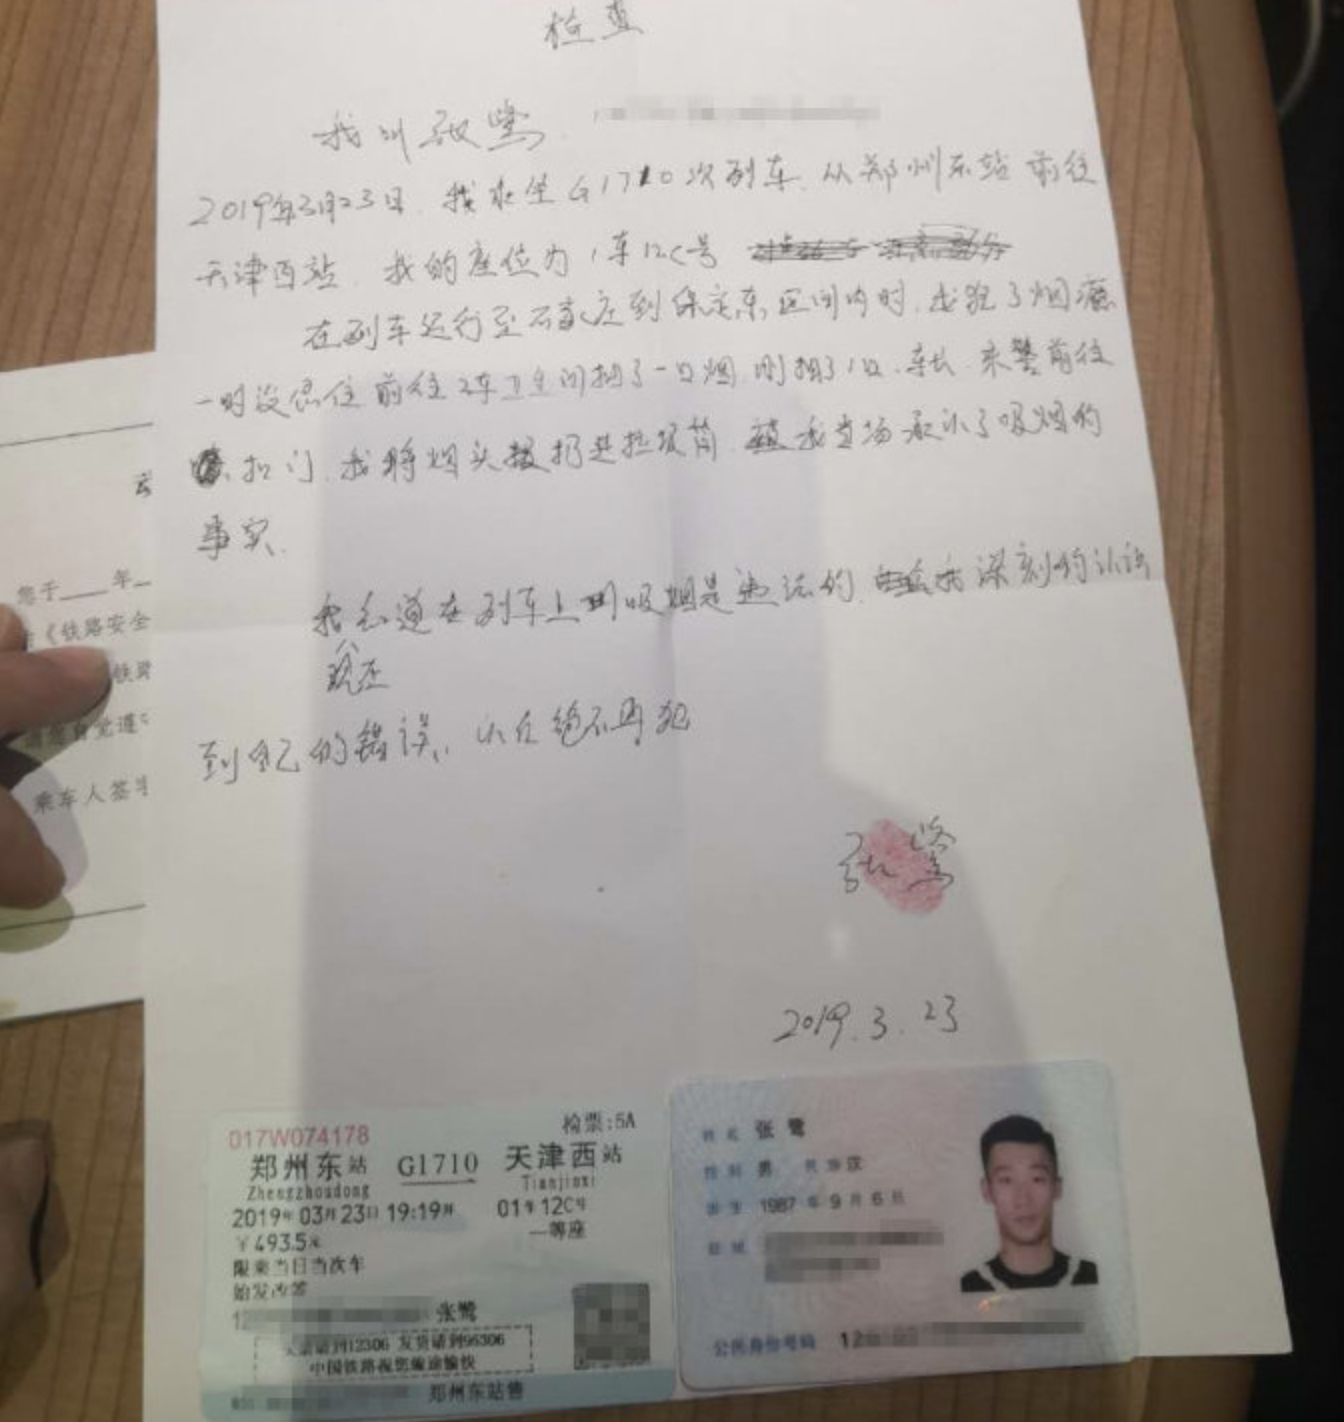 检查
我叫张鹭
2019年3月23日,我乘坐G1710次列车,从郑州东站前往
天津西站,我的座位为1车12C号
在列车运行至石家庄到保定东区间内时,我犯了烟瘾
一时没忍住前往2车卫生间抽了一口烟,刚抽了1口,车长、乘警前往
扣门,我将烟头扔进垃圾筒,我当场承认了吸烟的
事实.
我知道在列车上吸烟是违法的,我深刻的认识
现在
到自己的错误,以后绝不再犯
张鹭
2019.3.23
云
您于____年_
《铁路安全
铁路
自觉遵守
乘车人签字
017W074178
检票:5A
郑州东站 G1710 天津西站
Zhengzhoudong Tianjinxi
2019年03月23日 19:19开 01车12C号
¥493.5元 一等座
限乘当日当次车
始发改签
张鹭
12306 发货请到95306
中国铁路祝您旅途愉快
郑州东站售
姓名 张鹭
性别 男 民族 汉
出生 1987年9月6日
住址
公民身份号码 12